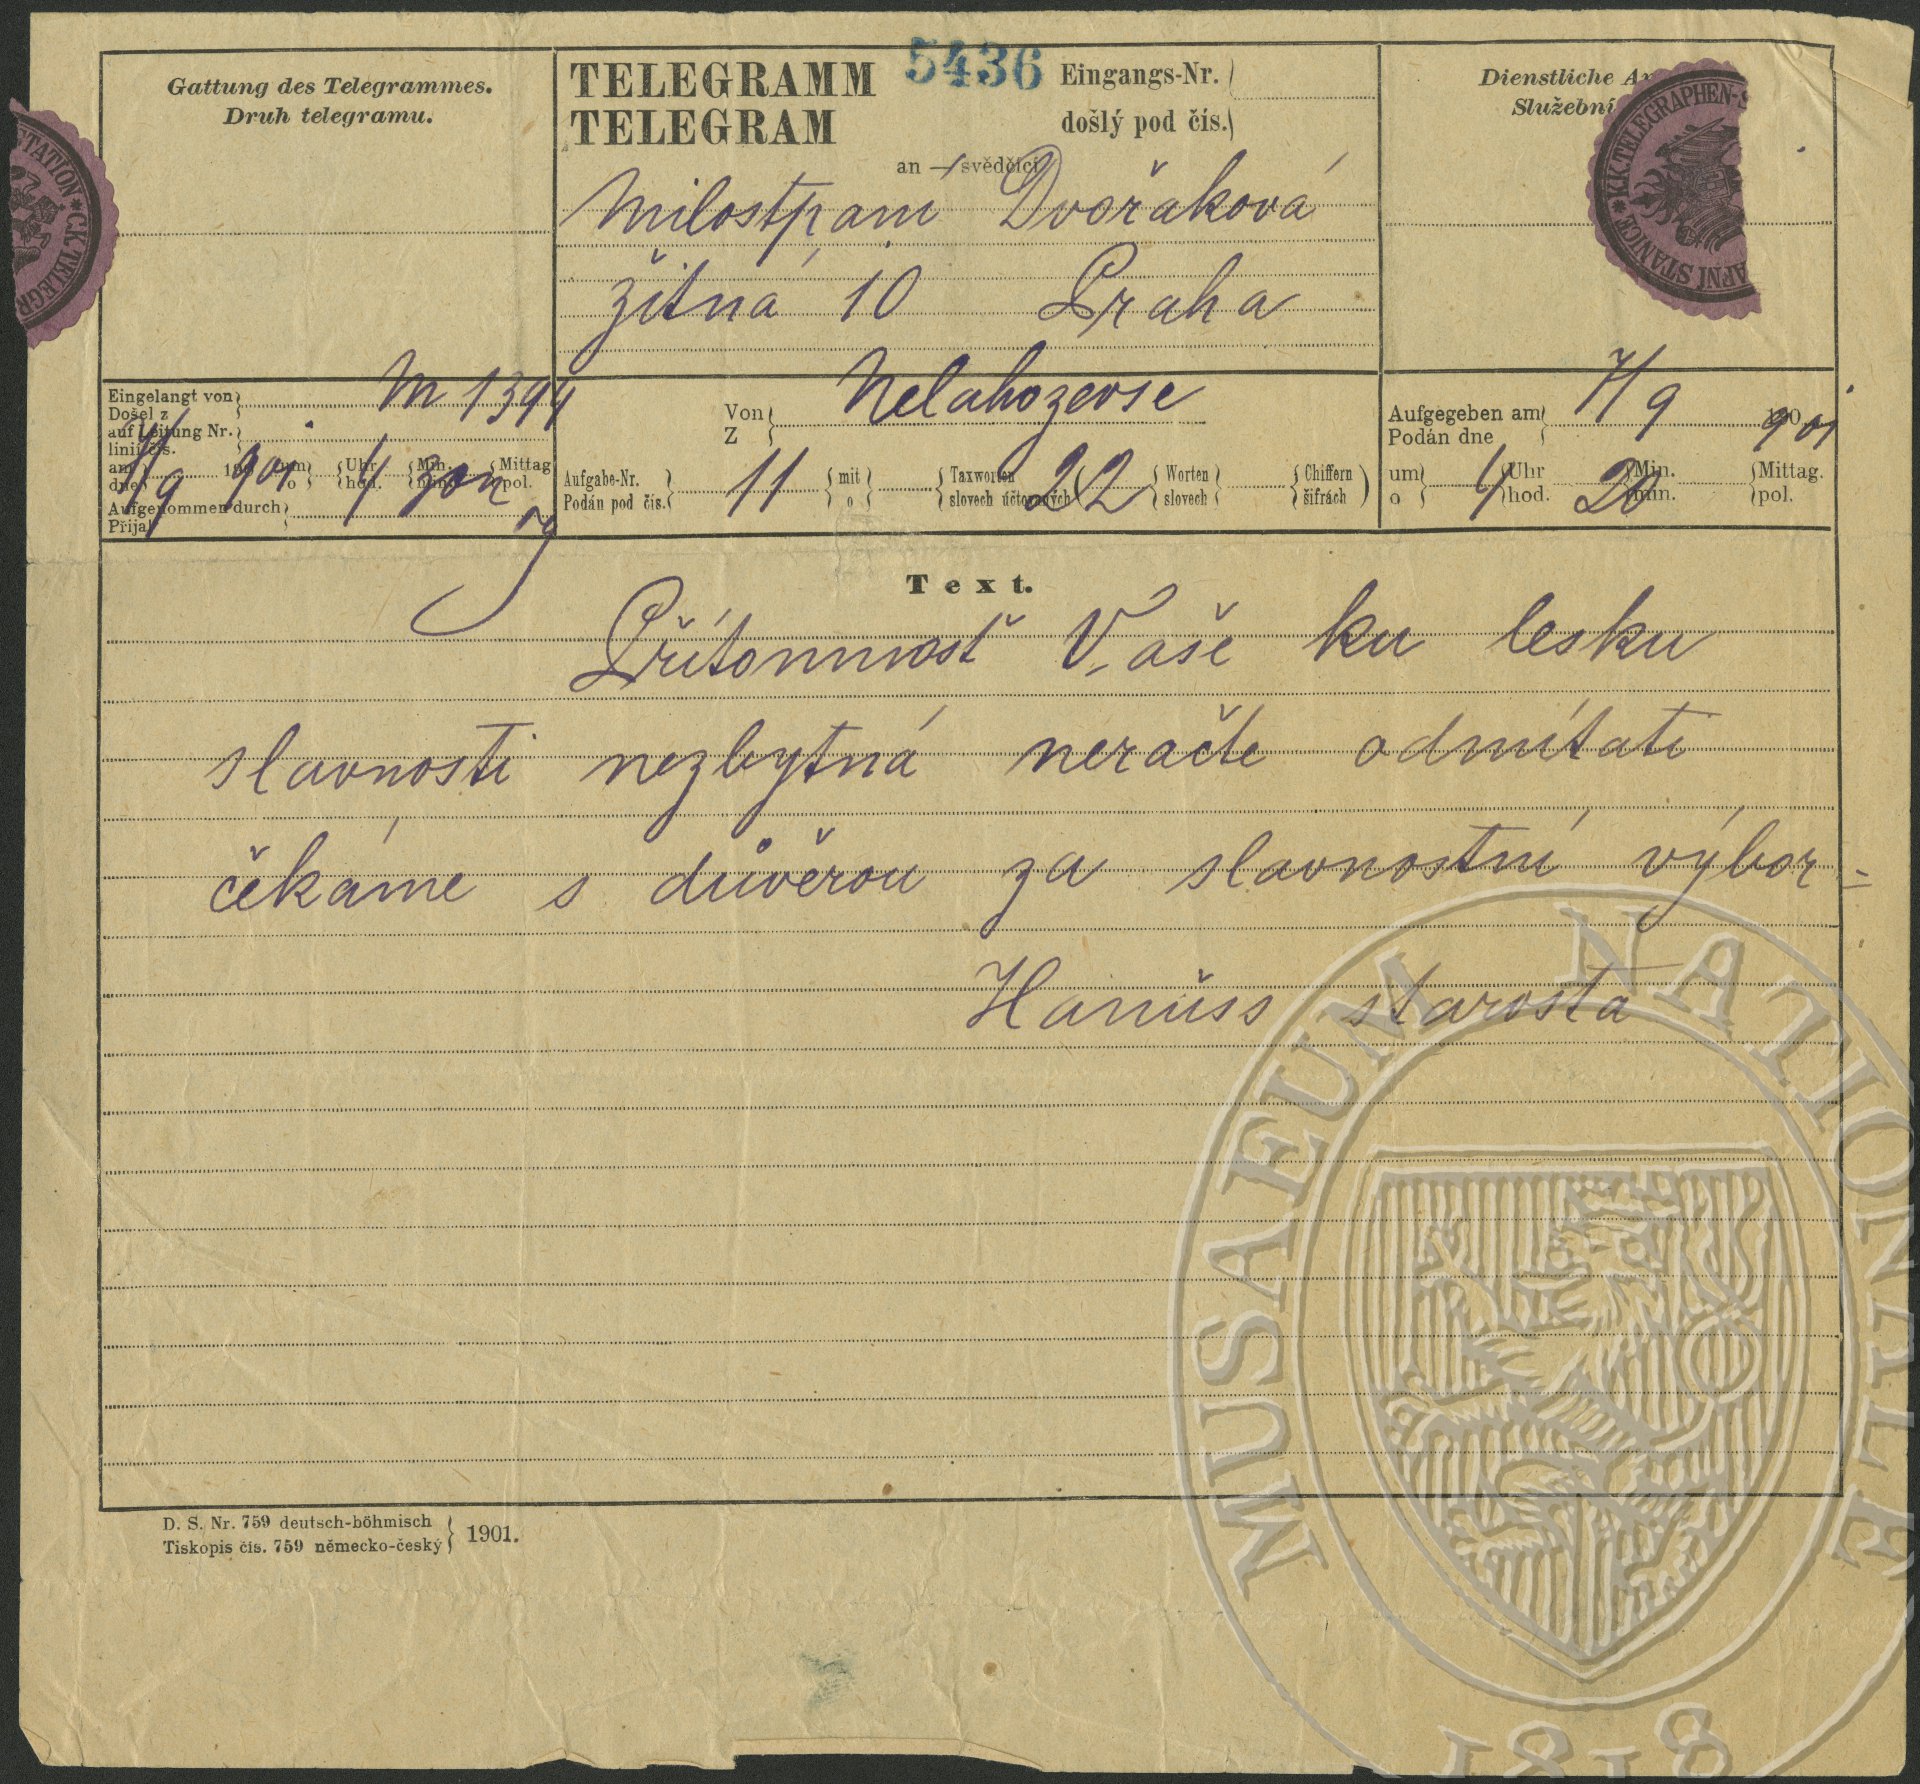 Gattung des Telegrammes.
Druh telegramu.
TELEGRAMM
TELEGRAM
5436
Eingangs-Nr.
došlý pod čís.
Dienstliche
Služební
K.K.TELEGRAPHEN-S
APNÍ STANICE
STATION * C.K.TELEGR
an — svědčící
Milostpaní Dvořaková
žitná 10 Praha
Eingelangt von
Došel z
M 1394
auf Leitung Nr.
linií čís.
am
dne
7/9 190 901 um
o
4 Uhr
hod.
30 Min.
min.
n Mittag
pol.
Aufgenommen durch
Přijal
Von
Z
Nelahozevse
Aufgegeben am
Podán dne
7/9 190 901
Aufgabe-Nr.
Podán pod čís.
11
mit
o
Taxworten
slovech účtovaných
22
Worten
slovech
Chiffern
šifrách
um
o
4 Uhr
hod.
20 Min.
min.
Mittag.
pol.
Text.
Přítomnosť Vaše ku lesku
slavnosti nezbytná neračte odmítati
čekáme s důvěrou za slavnostní výbor =
Hanuss starosta
D. S. Nr. 759 deutsch-böhmisch
Tiskopis čís. 759 německo-český
1901.
MUSAEUM NATIONALE
1818